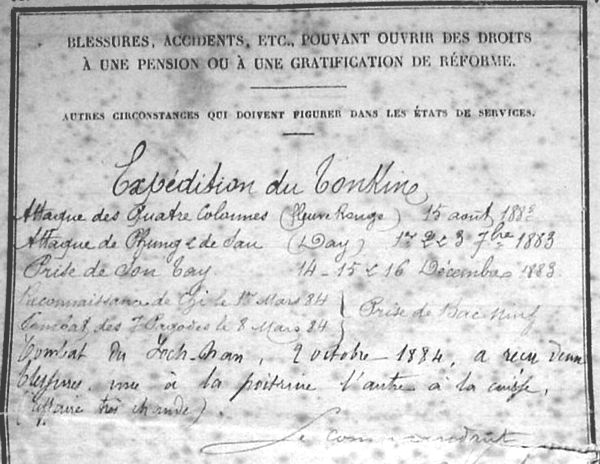 BLESSURES, ACCIDENTS, ETC., POUVANT OUVRIR DES DROITS
À UNE PENSION OU À UNE GRATIFICATION DE RÉFORME.
AUTRES CIRCONSTANCES QUI DOIVENT FIGURER DANS LES ÉTATS DE SERVICES.
Expédition du Tonkin
Attaque des Quatre Colonnes (Fleuve Rouge) 15 août 1883
Attaque de Phung & de (Day) 1er 2 & 3 7bre 1883
Prise de Son Tay 14 - 15 & 16 Décembre 1883.
Reconnaissance de le 1er Mars 84
Combat des 7 Pagodes le 8 Mars 84 } Prise de Bac Ninh
Combat du, 2 octobre 1884, a reçu deux
blessures, une à la poitrine l'autre à la cuisse,
(affaire très chaude).
Le Commandant